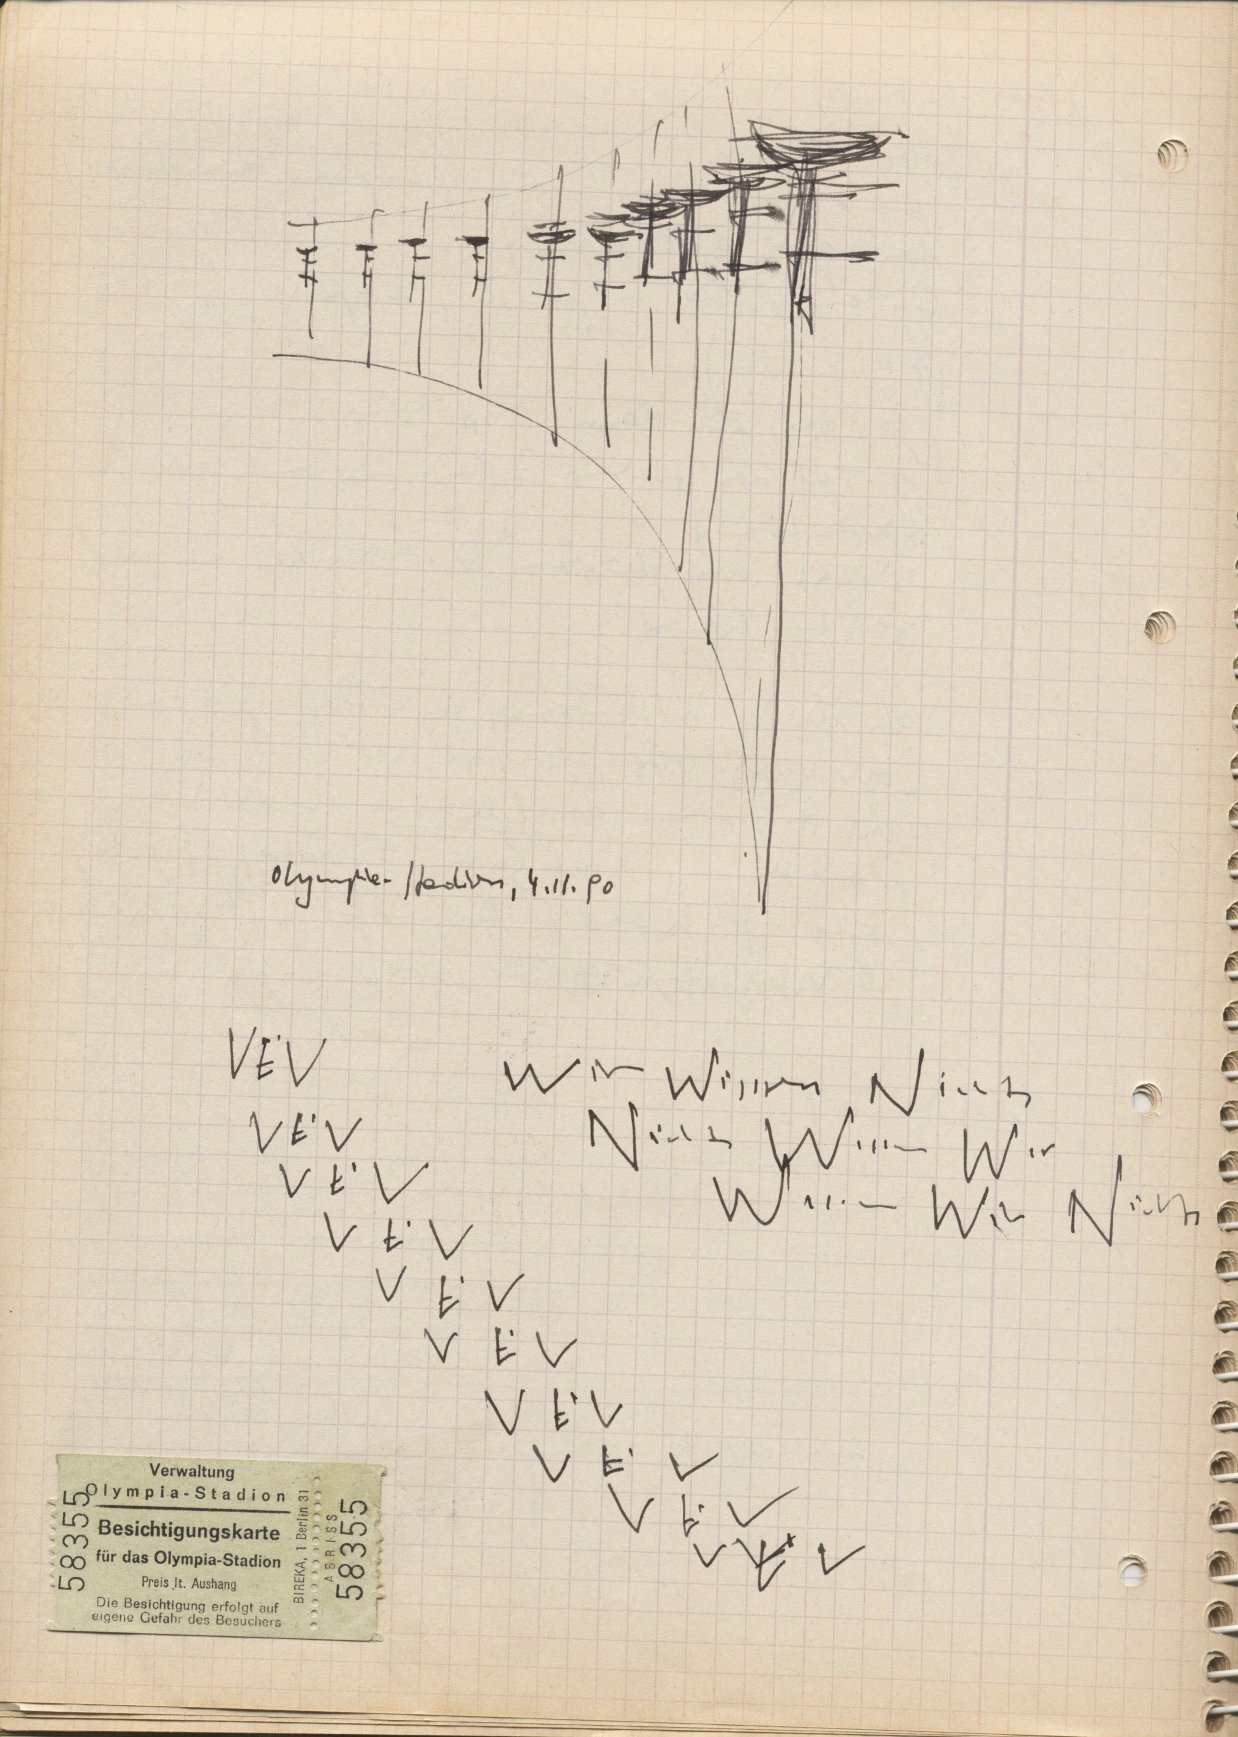 Olympia-Stadion, 4.11.90
VEV
VEV
VEV
VEV
VEV
VEV
VEV
VEV
VEV
VEV
Wir Wissen Nichts
Nichts Wissen Wir
Wissen Wir Nichts
Verwaltung
Olympia-Stadion
Besichtigungskarte
für das Olympia-Stadion
Preis lt. Aushang
Die Besichtigung erfolgt auf
eigene Gefahr des Besuchers
58355
BIREKA, 1 Berlin 31
ABRISS
58355